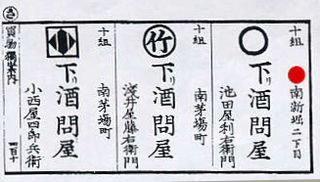 十組
南新堀二丁目
下リ酒問屋
池田屋利右衛門
十組
南茅場町
竹
下リ酒問屋
淺井屋藤右衛門
十組
南茅場町
下リ酒問屋
小西屋四郎兵衛
買物獨案内